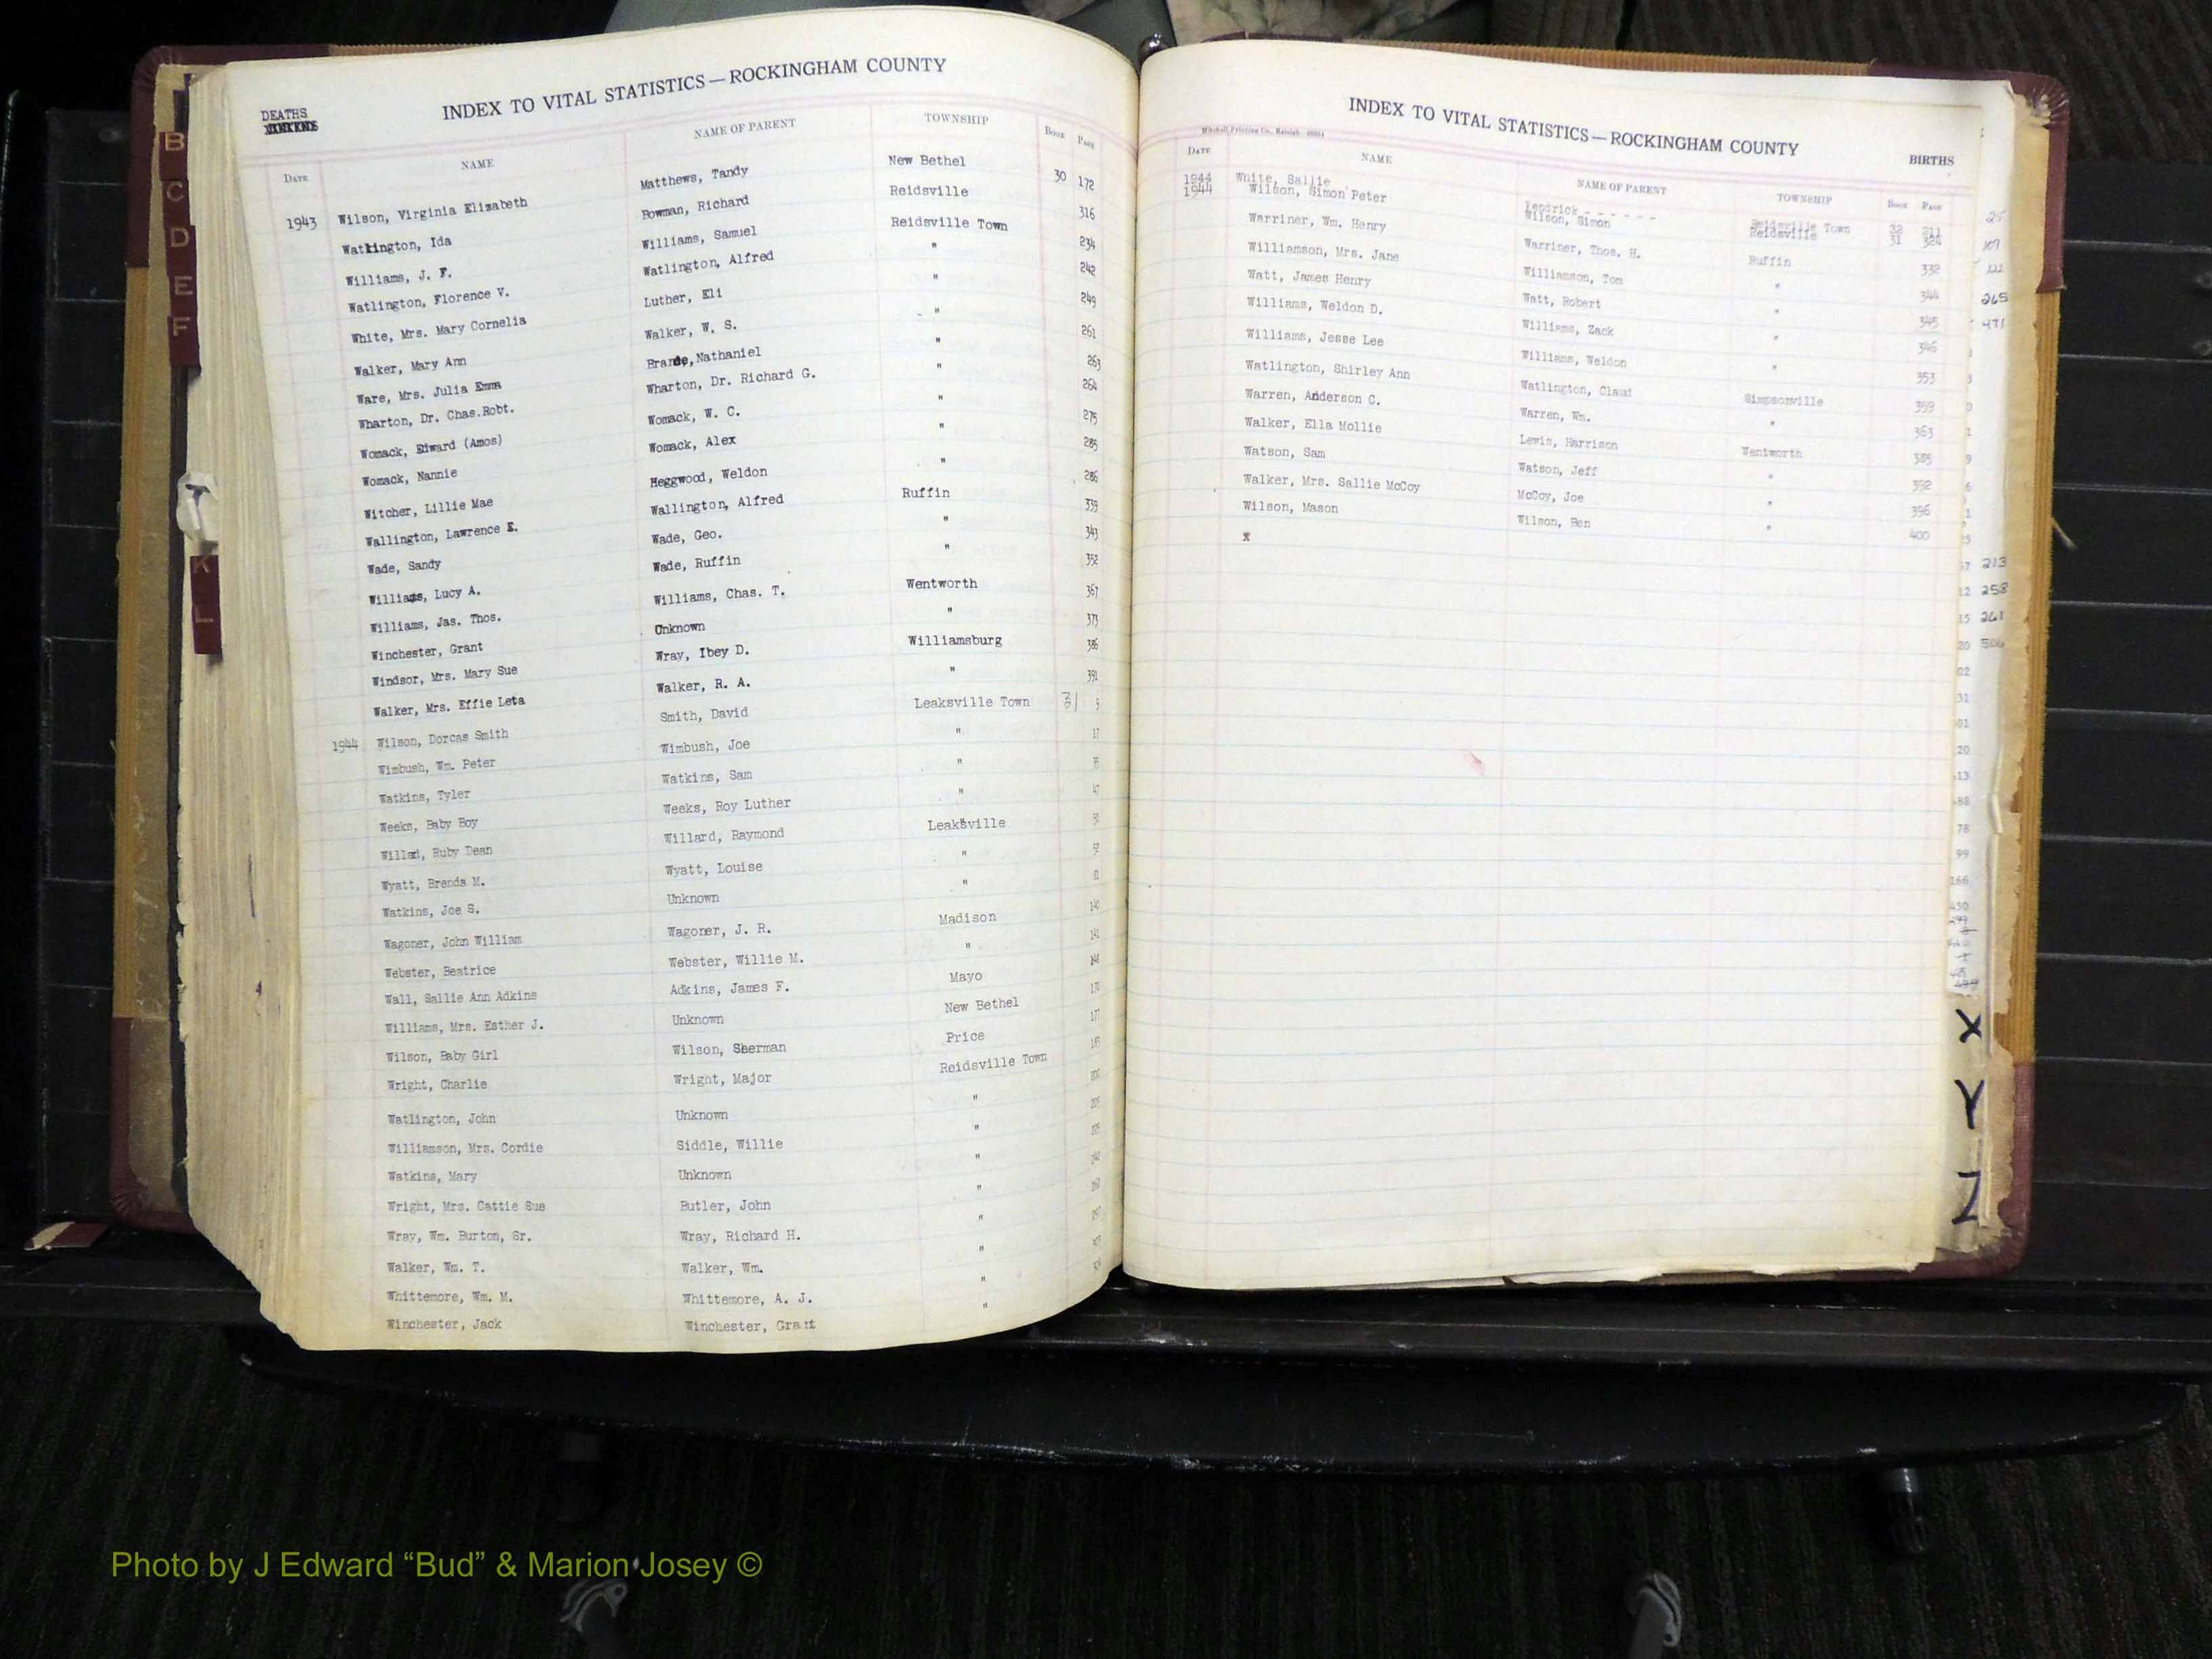 DEATHS
INDEX TO VITAL STATISTICS — ROCKINGHAM COUNTY
DATE NAME NAME OF PARENT TOWNSHIP BOOK PAGE
1943 Wilson, Virginia Elizabeth Matthews, Tandy New Bethel 30 172
Watkington, Ida Bowman, Richard Reidsville 316
Williams, J. F. Williams, Samuel Reidsville Town 234
Watlington, Florence V. Watlington, Alfred " 242
White, Mrs. Mary Cornelia Luther, Eli " 249
Walker, Mary Ann Walker, W. S. " 261
Ware, Mrs. Julia Emma Brande, Nathaniel " 263
Wharton, Dr. Chas.Robt. Wharton, Dr. Richard G. " 264
Womack, Edward (Amos) Womack, W. C. " 275
Womack, Nannie Womack, Alex " 285
Witcher, Lillie Mae Heggwood, Weldon " 286
Wallington, Lawrence E. Wallington, Alfred Ruffin 339
Wade, Sandy Wade, Geo. " 343
Williams, Lucy A. Wade, Ruffin " 352
Williams, Jas. Thos. Williams, Chas. T. Wentworth 367
Winchester, Grant Unknown " 373
Windsor, Mrs. Mary Sue Wray, Ibey D. Williamsburg 386
Walker, Mrs. Effie Leta Walker, R. A. " 391
1944 Wilson, Dorcas Smith Smith, David Leaksville Town 31 5
Wimbush, Wm. Peter Wimbush, Joe " 17
Watkins, Tyler Watkins, Sam "
Weeks, Baby Boy Weeks, Roy Luther " 47
Willard, Ruby Dean Willard, Raymond Leaksville
Wyatt, Brenda M. Wyatt, Louise "
Watkins, Joe S. Unknown "
Wagoner, John William Wagoner, J. R. Madison 140
Webster, Beatrice Webster, Willie M. " 141
Wall, Sallie Ann Adkins Adkins, James F. Mayo
Williams, Mrs. Esther J. Unknown New Bethel 170
Wilson, Baby Girl Wilson, Sherman Price 177
Wright, Charlie Wright, Major Reidsville Town
Watlington, John Unknown "
Williamson, Mrs. Cordie Siddle, Willie "
Watkins, Mary Unknown "
Wright, Mrs. Cattie Sue Butler, John "
Wray, Wm. Burton, Sr. Wray, Richard H. "
Walker, Wm. T. Walker, Wm. "
Whittemore, Wm. M. Whittemore, A. J. "
Winchester, Jack Winchester, Grant "
INDEX TO VITAL STATISTICS — ROCKINGHAM COUNTY
Mitchell Printing Co., Raleigh
BIRTHS
DATE NAME NAME OF PARENT TOWNSHIP BOOK PAGE
1944 White, Sallie Kendrick - - - - - - Reidsville Town 32 211
1944 Wilson, Simon Peter Wilson, Simon Reidsville 31 324
Warriner, Wm. Henry Warriner, Thos. H. Ruffin 332
Williamson, Mrs. Jane Williamson, Tom " 344
Watt, James Henry Watt, Robert " 345
Williams, Weldon D. Williams, Zack " 346
Williams, Jesse Lee Williams, Weldon " 353
Watlington, Shirley Ann Watlington, Claud Simpsonville 359
Warren, Anderson C. Warren, Wm. " 363
Walker, Ella Mollie Lewis, Harrison Wentworth 385
Watson, Sam Watson, Jeff " 392
Walker, Mrs. Sallie McCoy McCoy, Joe " 396
Wilson, Mason Wilson, Ben " 400
x
25
107
122
265
471
213
258
261
506
B
C
D
E
F
K
L
X
Y
Z
Photo by J Edward “Bud” & Marion Josey ©